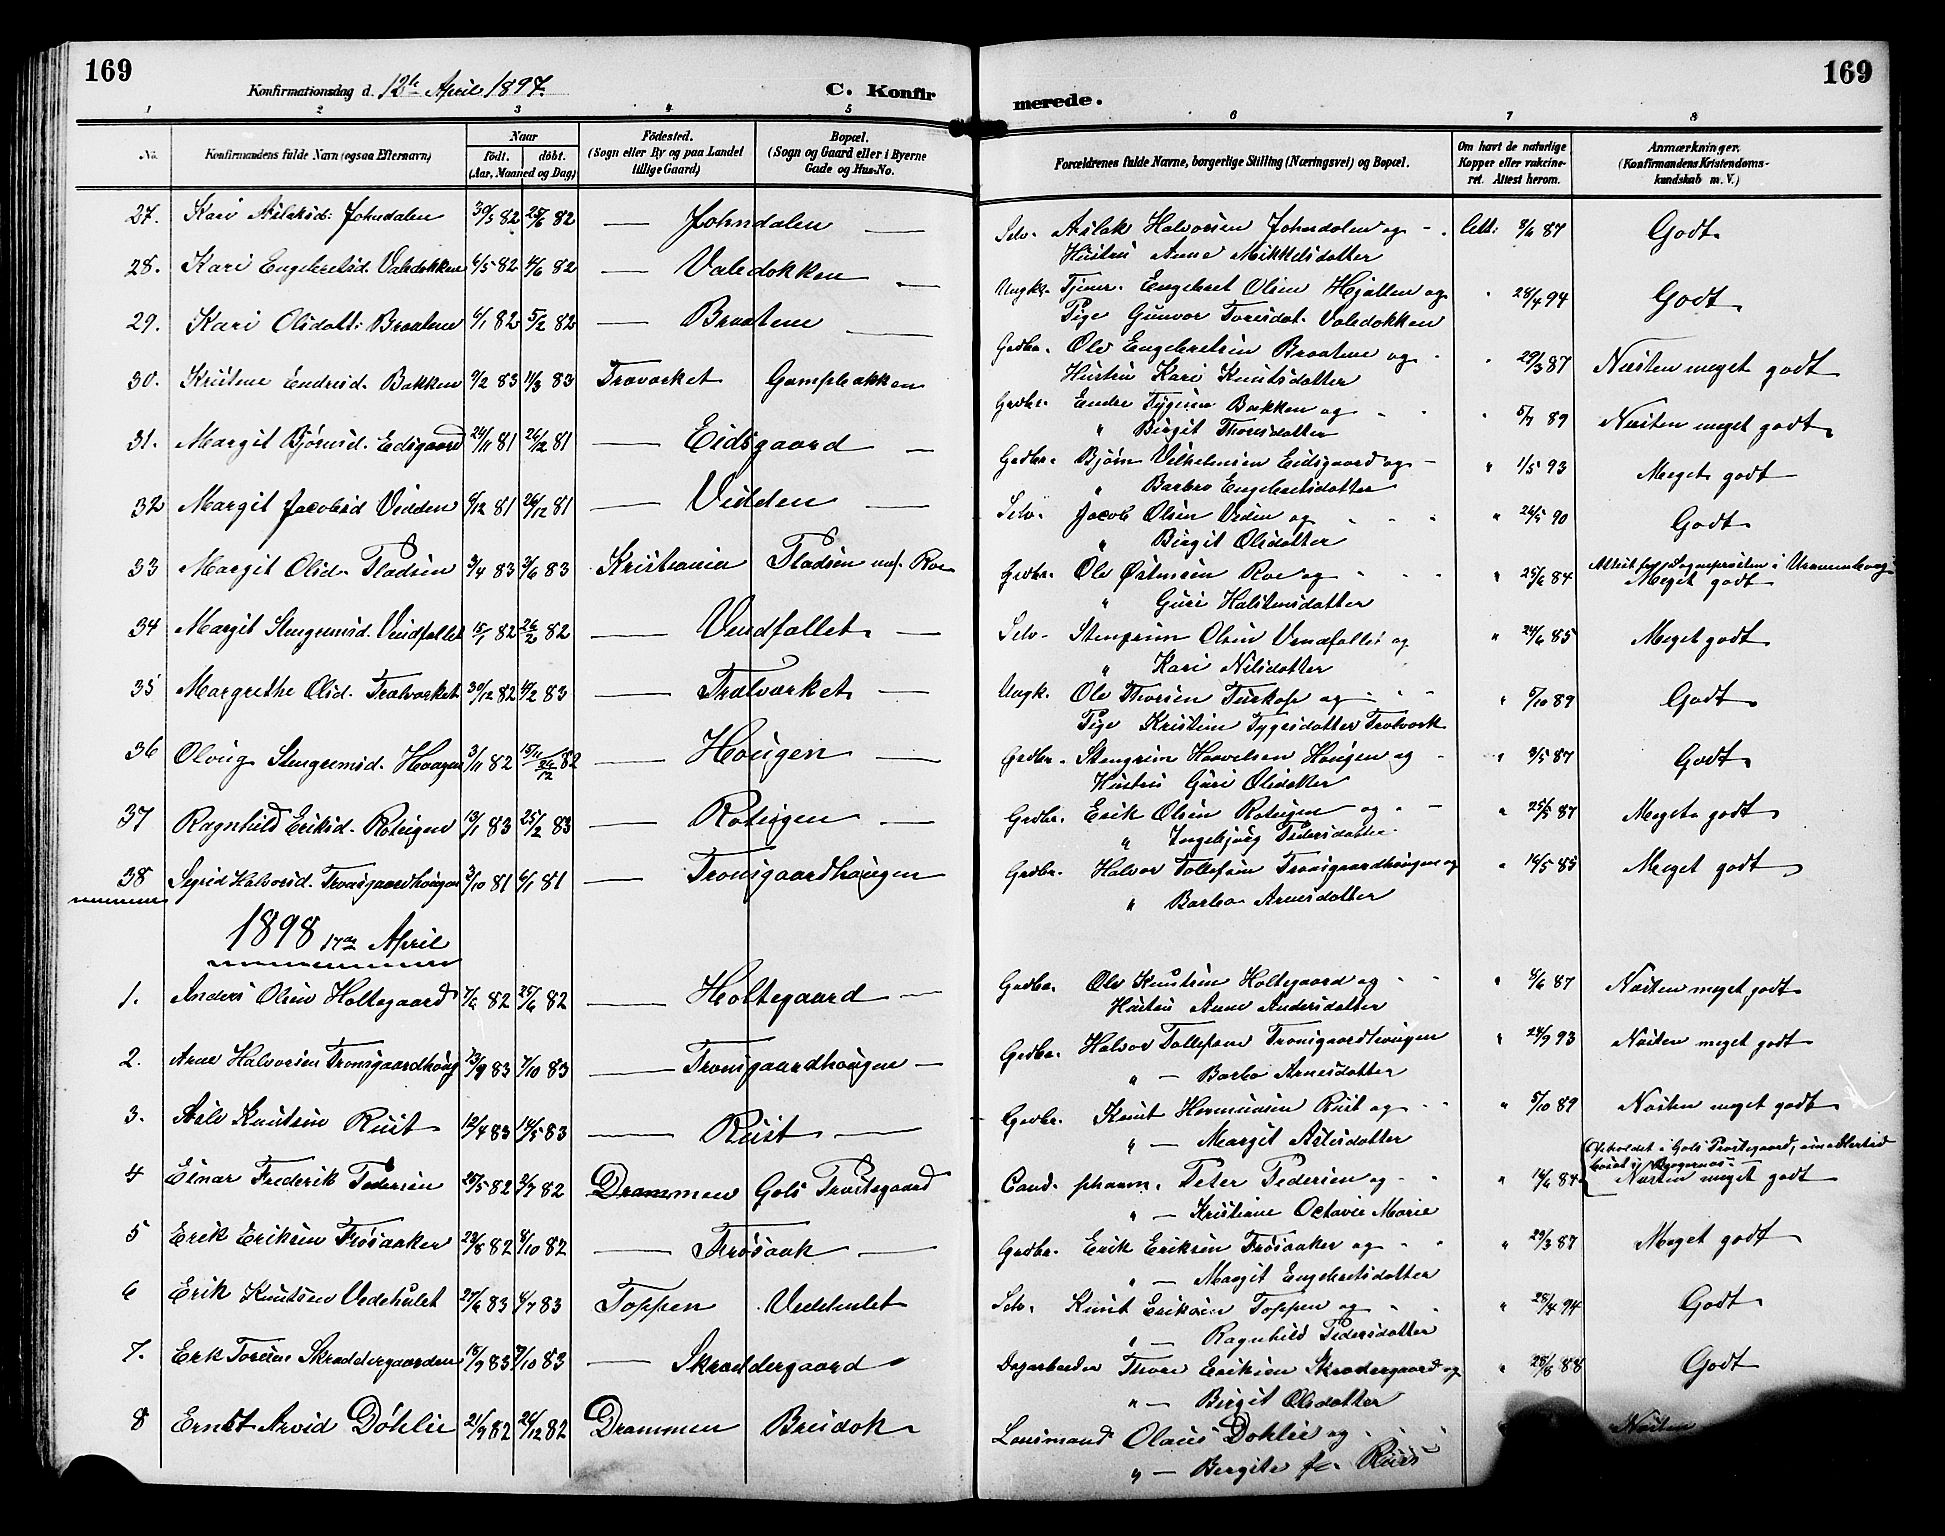 169
Konfirmationsdag d. 12te April 1897.
C. Konfir
merede.
169
1 2 3 4 5 6 7 8
No.
Konfirmandens fulde Navn (ogsaa Efternavn)
Naar
födt. döbt.
(Aar, Maaned og Dag)
Födested.
(Sogn eller By og paa Landet
tillige Gaard)
Bopæl.
(Sogn og Gaard eller i Byerne
Gade og Hus-No.
Forældrenes fulde Navne, borgerlige Stilling (Næringsvei) og Bopæl.
Om havt de naturlige
Kopper eller vakcine-
ret. Attest herom.
Anmærkninger.
(Konfirmandens Kristendoms-
kundskab m. V.)
27. Kari Aslaksd: Johndalen 30/5 82 25/6 82 — Johndalen — Selv. Aslak Halvorsen Johndalen og - . Att: 8/6 87 Godt.
Hustru Anne Mikkelsdatter
28. Kari Engebretsd. Valedokken 6/5 82 4/6 82 — Valedokken — Ungk. Tjener. Engebret Olsen Hjallen og " 28/4 94 Godt.
Pige Gunvor Toresdat. Valedokken
29. Kari Olsdatt: Braatene 6/1 82 5/2 82 — Braatene — Grdbr. Ole Engebretsen Braatene og " 29/3 87 Næsten meget godt
Hustru Kari Knutsdatter
30. Kristine Endresd. Bakken 9/2 83 11/3 83 Travarket Gampebakken Grdbr. Endre Tygesen Bakken og " 5/7 89 Næsten meget godt.
" Birgit Thoresdatter
31. Margit Bjørnsd. Eidsgaard 24/11 81 26/12 81 — Eidsgaard — Grdbr. Bjørn Vilhelmsen Eidsgaard og - " 1/5 93 Meget godt
" Barbro Engebretsdatter
32 Margit Jacobsd Veiden 9/12 81 26/12 81 — Veiden — Selv. Jacob Olsen Veden og " 26/5 90 Godt
" Birgit Olsdatter
33 Margit Olsd. Pladsen 3/4 83 3/6 83 Kristiania Pladsen Roe Grdbr. Ole Østensen Roe og " 25/6 84 Attest fra Sognepresten i Uranienborg
Meget godt
" Guri Halstensdatter
34 Margit Stengrimsd. Vendfallet 15/1 82 26/2 82 — Vendfallet. — Selv. Stengrim Olsen Vendfallet og " 24/6 85 Meget godt
" Kari Nilsdatter
35 Margrethe Olsd. Tralvarket 30/12 82 4/2 83 — Tralvarket — Ungk. Ole Thoresen og " 5/10 89 Godt.
Pige Kristine Tygesdatter Tralvark
36 Olvug Stengrimsd. Hougen 3/11 82 15/11 26/12 82 — Hougen — Grdbr. Stengrim Haavelsen Hougen og " 3/5 87 Godt.
Hustru Guri Olsdatter
37 Ragnhild Eriksd. Roteigen 13/1 83 25/2 83 — Roteigen — Grdbr. Erik Olsen Roteigen og " 25/5 87 Meget godt
" Ingebjørg Pedersdatter
38 Sigrid Halvorsd. Tronsgaardhougen 3/10 81 6/1 81 — Tronsgaardhougen Grdbr. Halvor Tollefsen Tronsgaardhougen og " 16/5 85 Meget godt
" Barbro Arnesdatter
1898 17de April
1. Anders Olsen Holtegaard 7/6 82 25/6 82 — Holtegaard — Grdbr. Ole Knutsen Holtegaard og " 8/6 87 Næsten meget godt.
Hustru Anne Andersdatter
2. Arne Halvorsen Tronsgaardhoug 13/9 83 7/10 83 — Tronsgaardhougen — Grdbr. Halvor Tollefsen Tronsgaardhougen " 24/9 93 Næsten meget godt
" — Barbro Arnesdatter
3. Asle Knutsen Rust 12/4 83 14/5 83 — Rust — Grdbr. Knut Hermundsen Rust og " 5/10 89 Næsten meget godt
" — Margit Aslesdatter
4 Einar Frederik Pedersen 25/5 82 2/7 82 Drammen Gols Præstegaard Cand. pharm. Peter Pedersen og " 16/6 84 Opholdet i Gols Præstegaard, imidlertid
Næsten meget godt
" — Kristiane Octavie Marie
5 Erik Eriksen Frøsaaker 23/8 82 8/10 82 — Frøsaak — Grdbr. Erik Eriksen Frøsaaker og " 29/3 87 Meget godt
" — Margit Engebretsdatter
6 Erik Knutsen Vedehulet 27/6 83 4/7 83 Toppen Veddulet Selv. Knut Eriksen Toppen og " 28/4 94 Godt.
" — Ragnhild Pedersdatter
7. Erk Toresen Skraddergaarden 15/9 83 7/10 83 — Skraddergaard " Dagarbeider Thore Eriksen Skradergaard og " 28/8 88 Godt
" — Birgit Olsdatter
8 Ernst Arvid Döhlie 21/9 82 26/12 82 Drammen Breidok. Lensmand Olaus Dohlie og Næsten
" — Bergite f.